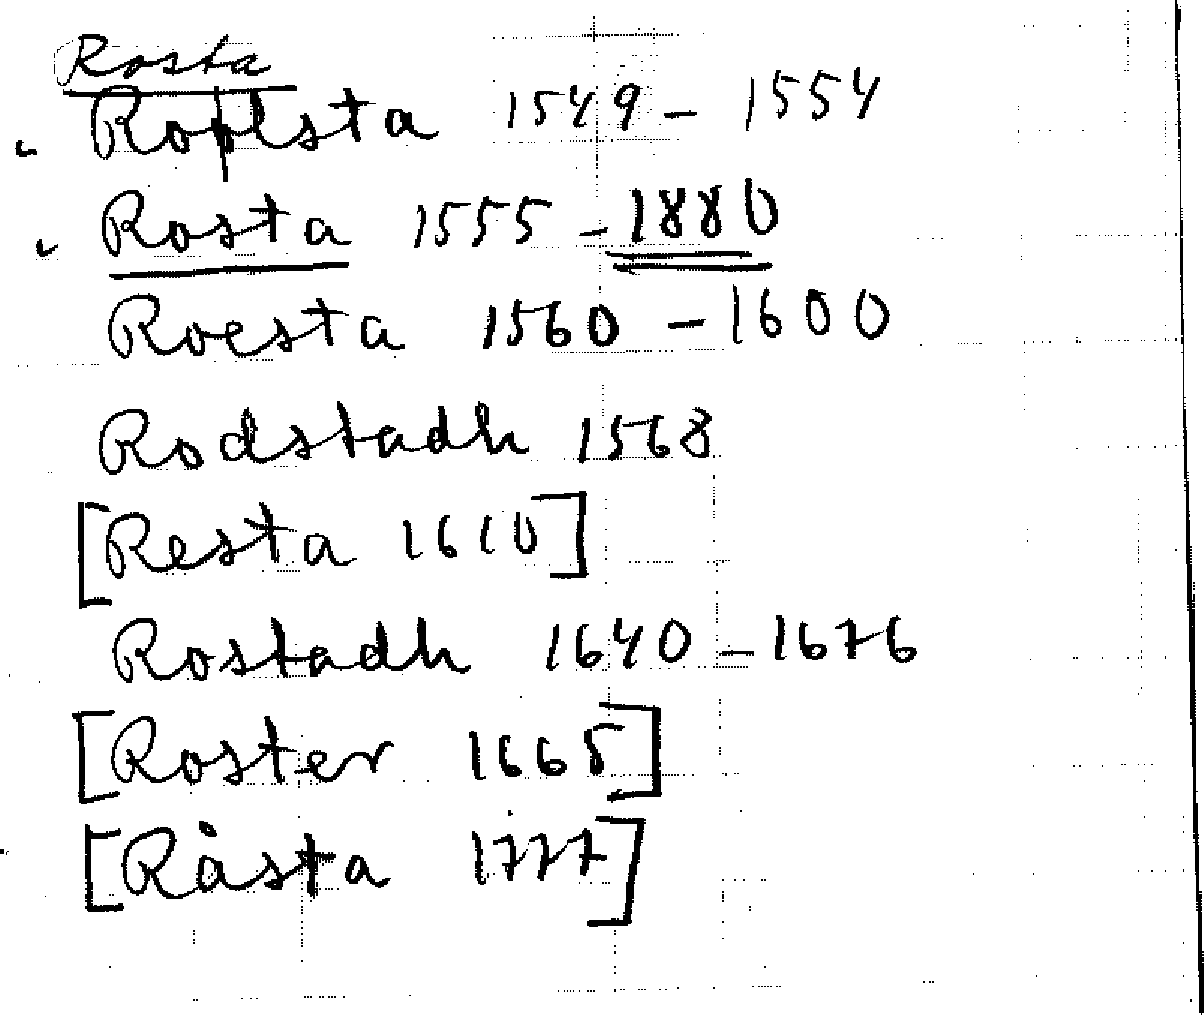 Rosta
Roolsta 1549 - 1554
Rosta 1555 - 1880
Roesta 1560 - 1600
Rodstadh 1568
[Resta 1610]
Rostadh 1640 - 1676
[Roster 1665]
[Råsta 1777]